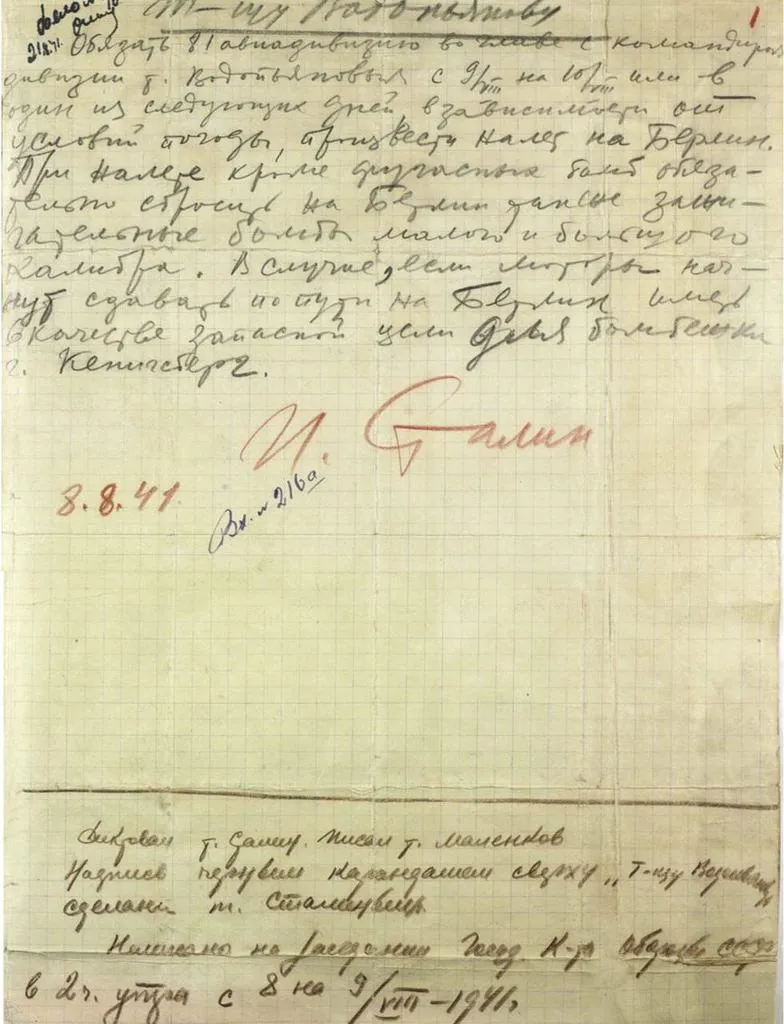 1
Т-щу Водопьянову
21/XI 41.
Обязать 81 авиадивизию во главе с командиром
дивизии т. Водопьяновым с 9/VIII на 10/VIII или в
один из следующих дней, в зависимости от
условий погоды, произвести налет на Берлин.
При налете кроме фугасных бомб обяза-
тельно сбросить на Берлин также зажи-
гательные бомбы малого и большого
калибра. В случае, если моторы нач-
нут сдавать по пути на Берлин иметь
в качестве запасной цели для бомбежки
г. Кенигсберг.
И. Сталин
8.8.41
Вх. № 216а
Диктовал т. Сталин. Писал т. Маленков
Надпись черным карандашем сверху „Т-щу Водопьянову
сделана т. Сталиным
Написано на заседании Госуд. К-та Обороны СССР
в 2 ч. утра с 8 на 9/VIII – 1941 г.